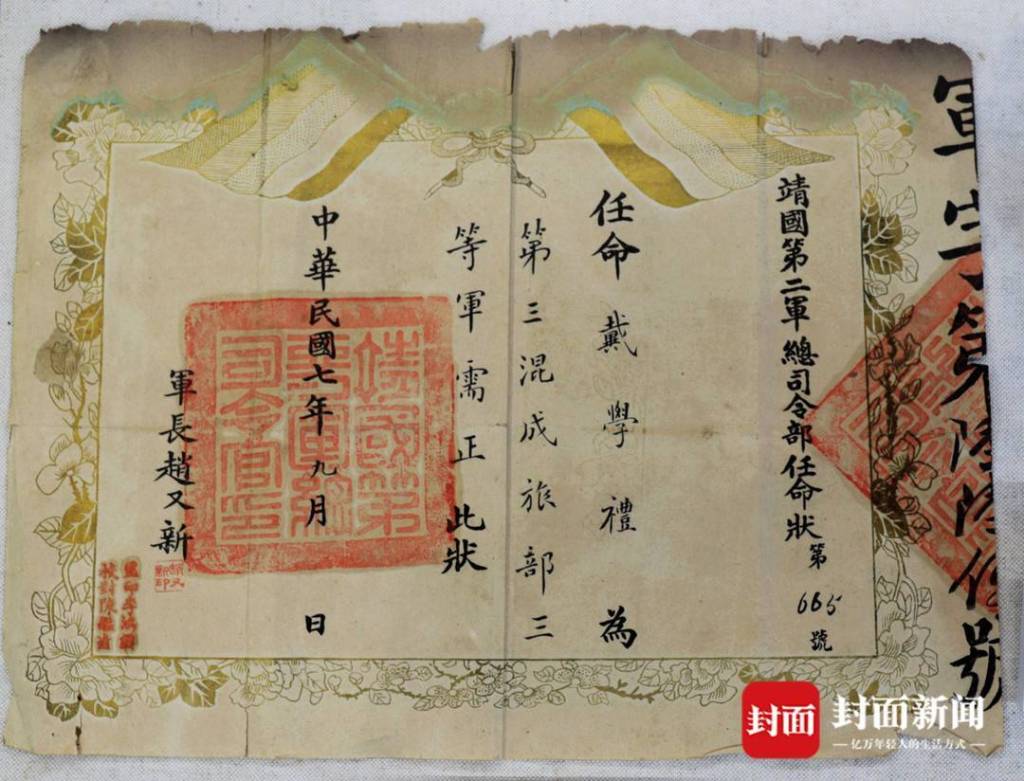 軍字第陸陸伍號
靖國第二軍總司令部任命狀第665號
任命戴學禮為
第三混成旅部三
等軍需正此狀
中華民國七年九月 日
靖國第
二軍總
司令官印
軍長趙又新
趙又
新印
封面
封面新闻
亿万年轻人的生活方式